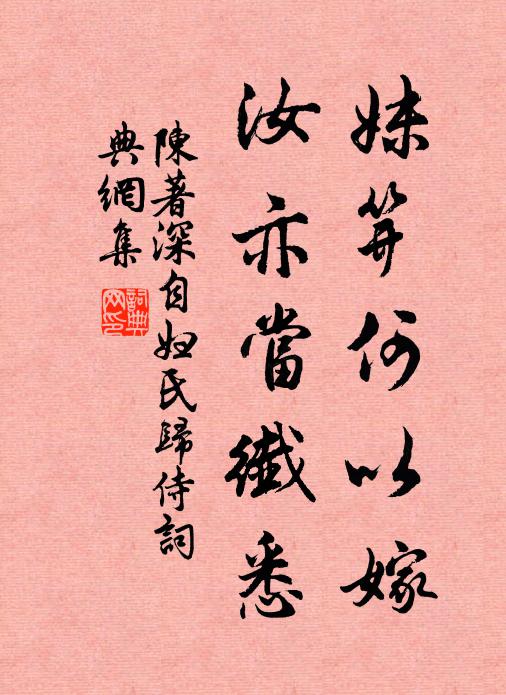 妹笄何以嫁
汝亦當纖悉
陳著深自妞氏歸侍詞
典網集
詞典網印